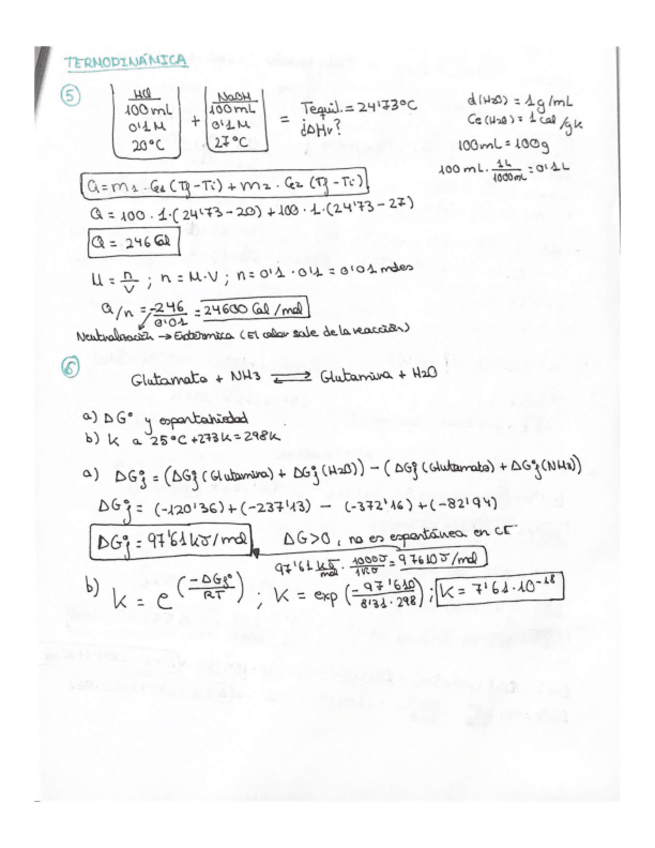 TERMODINÁMICA
⑤ HCl 100mL 0'1M 20°C + NaOH 100mL 0'1M 27°C = Tequil. = 24'73°C ¿ΔHv?
d(H2O) = 1g/mL
Ce(H2O) = 1cal/gK
100mL = 100g
100mL · 1L/1000mL = 0'1L
Q = m1 · Ce1 (Tf - Ti) + m2 · Ce2 (Tf - Ti)
Q = 100 · 1 · (24'73 - 20) + 100 · 1 · (24'73 - 27)
Q = 246 Cal
M = n/V ; n = M·V ; n = 0'1 · 0'1 = 0'01 moles
Q/n = -246/0'01 = 24600 Cal/mol
Neutralización → Exotérmica (El calor sale de la reacción)
⑥
Glutamato + NH3 ⇌ Glutamina + H2O
a) ΔG° y espontaneidad
b) K a 25°C + 273K = 298K
a) ΔG°f = (ΔG°f (Glutamina) + ΔG°f (H2O)) - (ΔG°f (Glutamato) + ΔG°f (NH3))
ΔG°f = (-120'36) + (-237'13) - (-372'16) + (-82'94)
ΔG°f = 97'61 kJ/mol ΔG>0, no es espontánea en CE
97'61 kJ/mol · 1000J/1KJ = 97610 J/mol
b) K = e^(-ΔGf°/RT) ; K = exp (-97'610/8'31·298) ; K = 7'61·10^-18